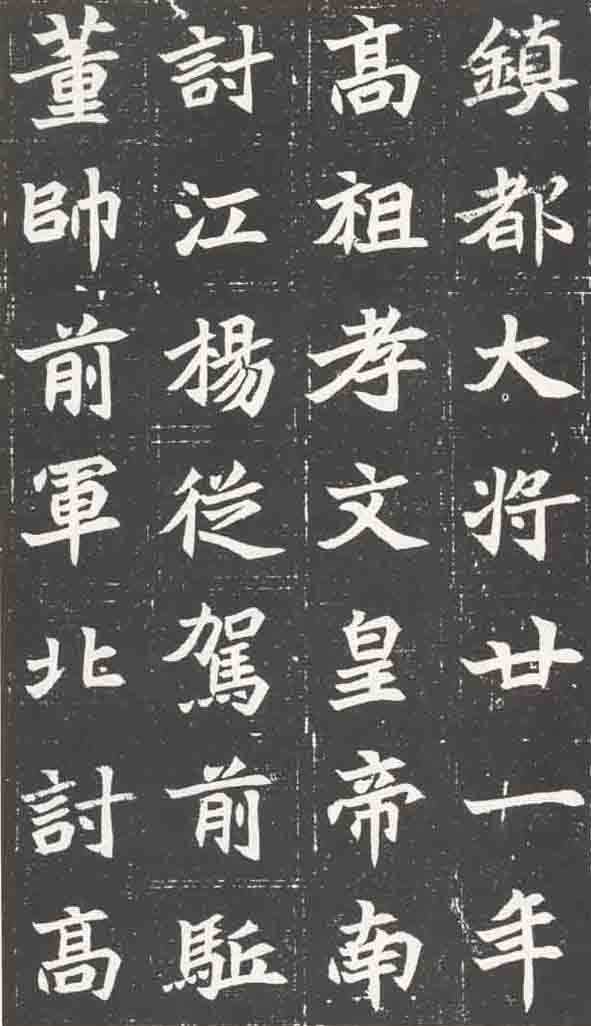 鎮都大将廿一年
高祖孝文皇帝南
討江楊從駕前駈
董帥前軍北討高